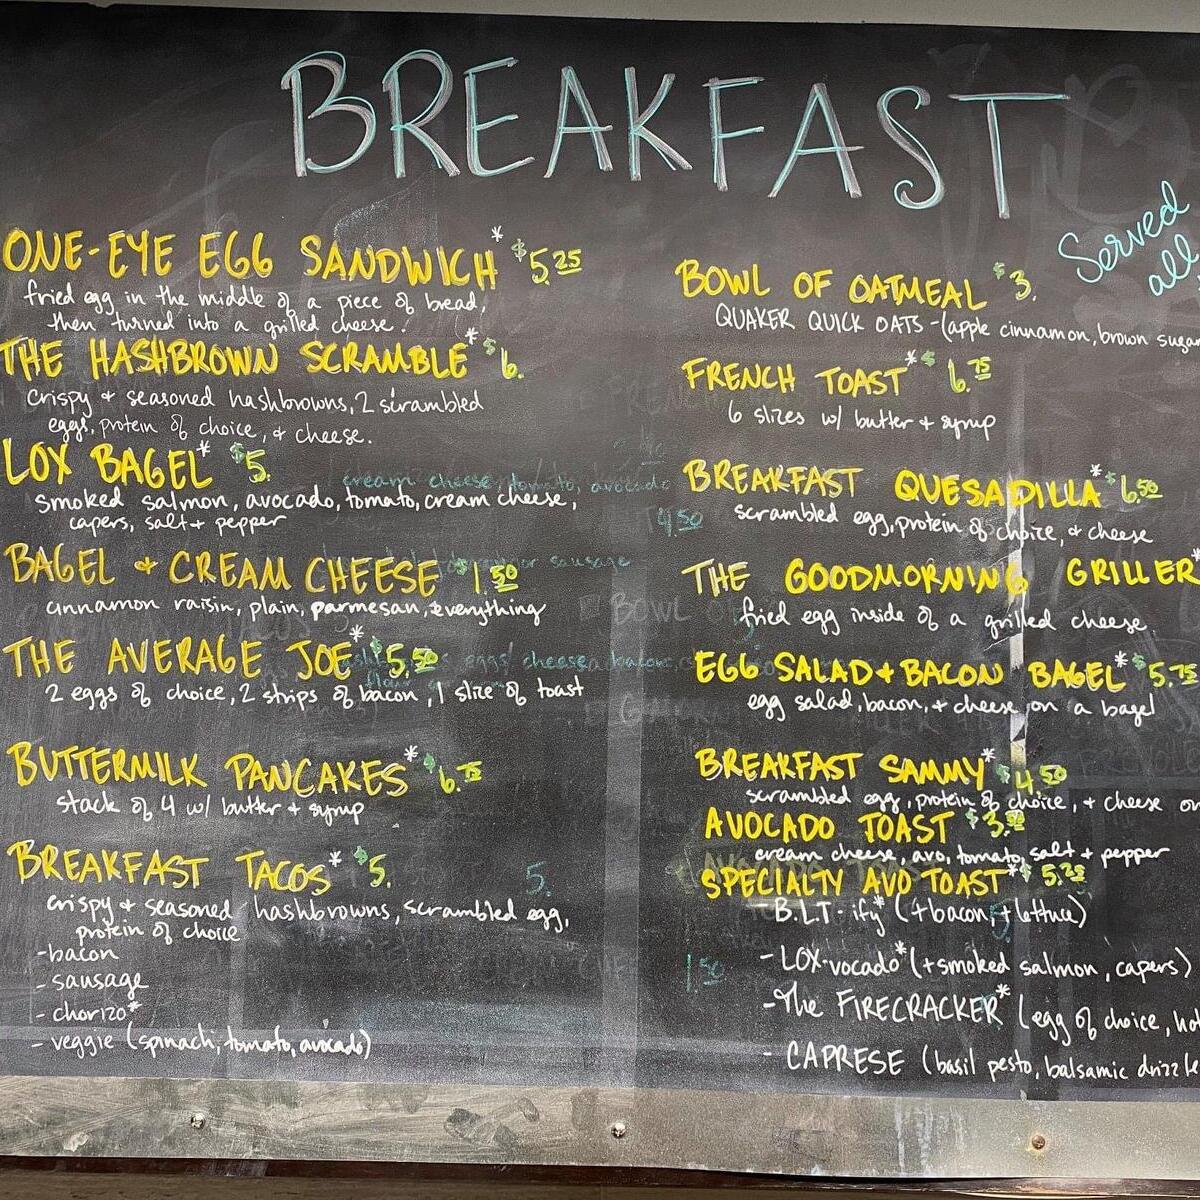 BREAKFAST
Served
all
ONE-EYE EGG SANDWICH* $5.25
fried egg in the middle of a piece of bread,
then turned into a grilled cheese!
THE HASHBROWN SCRAMBLE* $6.
crispy + seasoned hashbrowns, 2 scrambled
eggs, protein of choice, + cheese.
LOX BAGEL* $5.
smoked salmon, avocado, tomato, cream cheese,
capers, salt + pepper
BAGEL + CREAM CHEESE $1.50
cinnamon raisin, plain, parmesan, everything
THE AVERAGE JOE* $5.50
2 eggs of choice, 2 strips of bacon, 1 slize of toast
BUTTERMILK PANCAKES* $6.75
stack of 4 w/ butter + syrup
BREAKFAST TACOS* $5.
crispy + seasoned hashbrowns, scrambled egg,
protein of choice
-bacon
-sausage
-chorizo*
-veggie (spinach, tomato, avocado)
BOWL OF OATMEAL $3.
QUAKER QUICK OATS - (apple cinnamon, brown sugar
FRENCH TOAST* $6.75
6 slizes w/ butter + syrup
BREAKFAST QUESADILLA* $6.50
scrambled egg, protein of choice, + cheese
THE GOODMORNING GRILLER*
fried egg inside of a grilled cheese
EGG SALAD + BACON BAGEL* $5.75
egg salad, bacon, + cheese on a bagel
BREAKFAST SAMMY* $4.50
scrambled egg, protein of choice, + cheese on
AVOCADO TOAST $3.50
cream cheese, avo, tomato, salt + pepper
SPECIALTY AVO TOAST* $5.25
-B.L.T-ify* (+bacon, +lettuce)
-LOX-vocado* (+smoked salmon, capers)
-The FIRECRACKER* (egg of choice, hot
-CAPRESE (basil pesto, balsamic drizzle